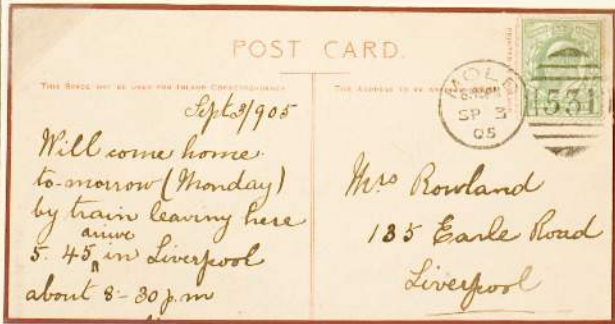 POST CARD.
THIS SPACE MAY BE USED FOR INLAND CORRESPONDENCE
THE ADDRESS TO BE
Sept 3/905
Will come home
to-morrow (Monday)
by train leaving here
5. 45 arrive in Liverpool
about 8-30 p.m
MOLD
SP 3
05
531
Mrs Rowland
135 Earle Road
Liverpool